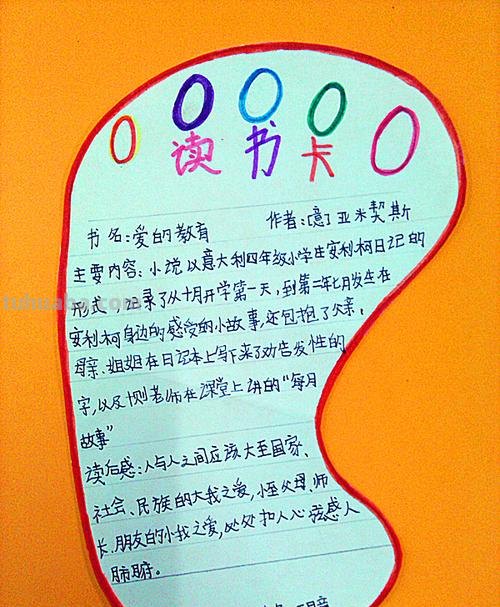 读书卡
书名:爱的教育 作者:[意]亚米契斯
主要内容:小说以意大利四年级小学生安利柯日记的
形式,记录了从十月开学第一天,到第二年七月发生在
安利柯身边的感受的小故事,还包抱了父亲、
母亲、姐姐在日记本上写下来了劝告发性的
字,以及十则老师在课堂上讲的"每月
故事"
读后感:人与人之间应该大至国家、
社会、民族的大我之爱,小至父母、师
长、朋友的小我之爱,处处扣人心弦感人
肺腑。